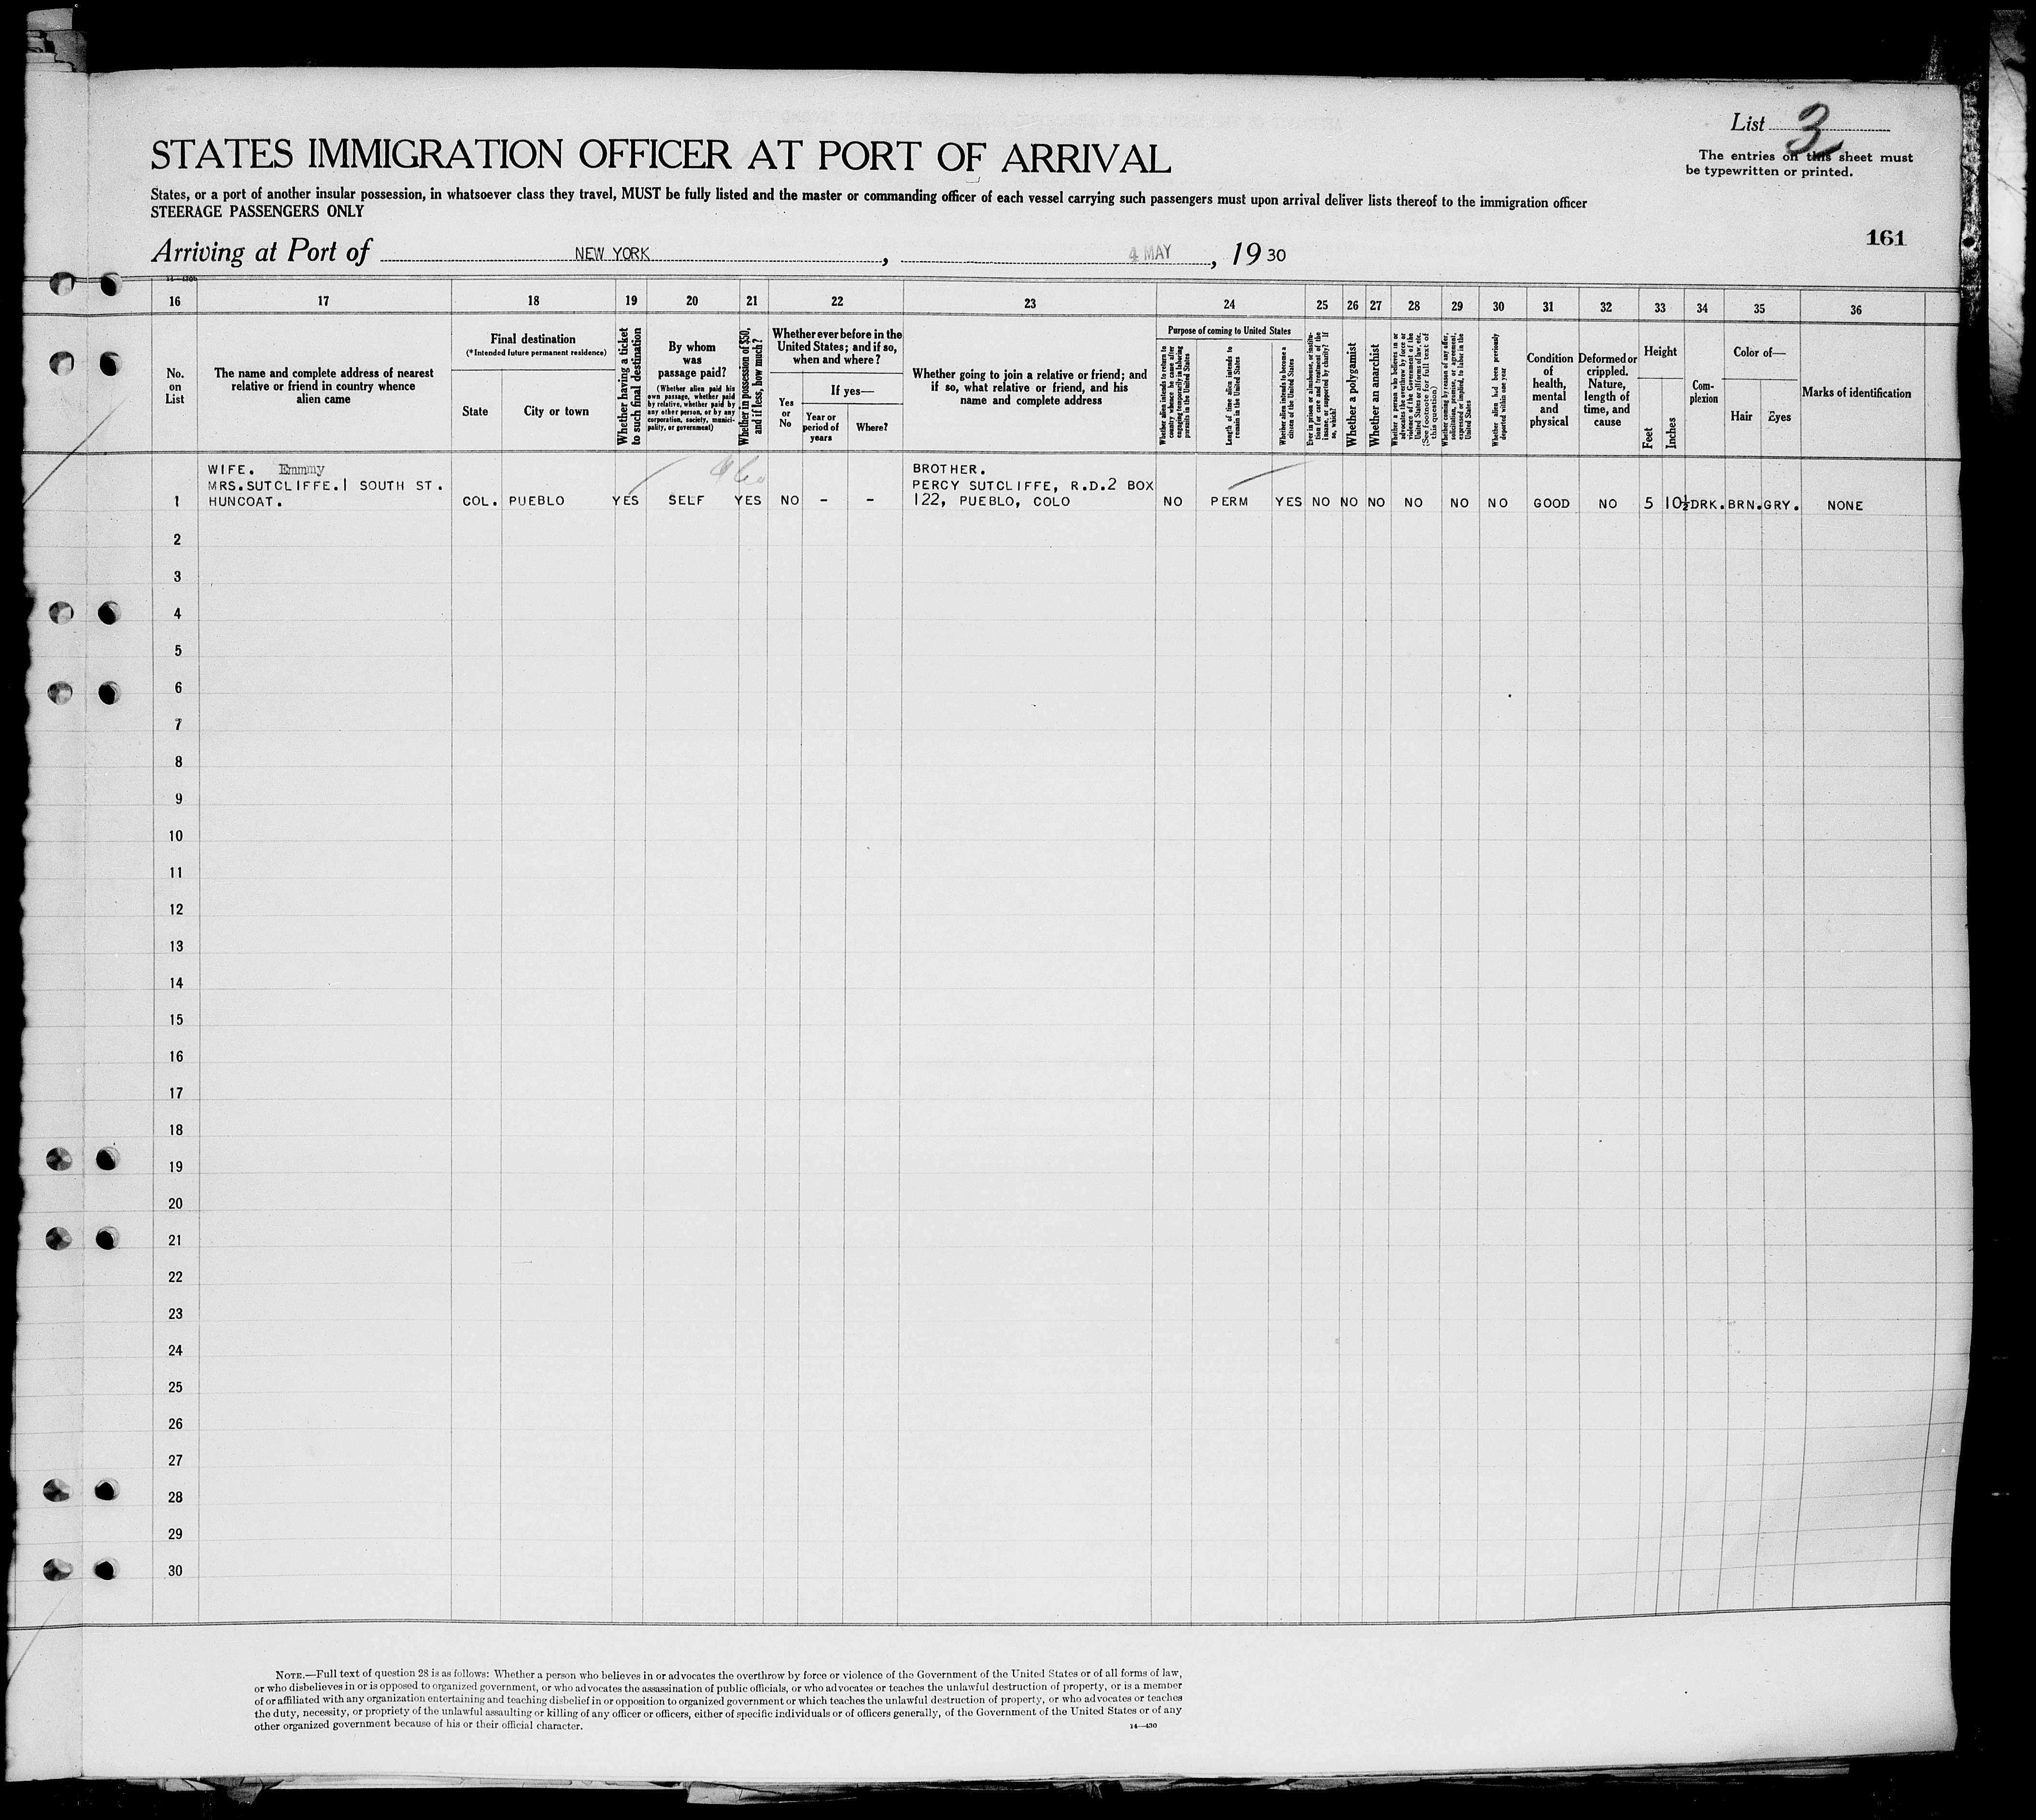 List 3
STATES IMMIGRATION OFFICER AT PORT OF ARRIVAL
The entries on this sheet must
be typewritten or printed.
States, or a port of another insular possession, in whatsoever class they travel, MUST be fully listed and the master or commanding officer of each vessel carrying such passengers must upon arrival deliver lists thereof to the immigration officer
STEERAGE PASSENGERS ONLY
161
Arriving at Port of NEW YORK, 4 MAY, 19 30
16 17 18 19 20 21 22 23 24 25 26 27 28 29 30 31 32 33 34 35 36
No.
on
List
The name and complete address of nearest
relative or friend in country whence
alien came
Final destination
(*Intended future permanent residence)
State
City or town
Whether having a ticket
to such final destination
By whom
was
passage paid?
(Whether alien paid his
own passage, whether paid
by relative, whether paid by
any other person, or by any
corporation, society, munici-
pality, or government)
Whether in possession of $50,
and if less, how much?
Whether ever before in the
United States; and if so,
when and where?
Yes
or
No
If yes—
Year or
period of
years
Where?
Whether going to join a relative or friend; and
if so, what relative or friend, and his
name and complete address
Purpose of coming to United States
Whether alien intends to return to
country whence he came after
engaging temporarily in laboring
pursuits in the United States
Length of time alien intends to
remain in the United States
Whether alien intends to become a
citizen of the United States
Ever in prison or almshouse, or institu-
tion for care and treatment of the
insane, or supported by charity? If
so, which?
Whether a polygamist
Whether an anarchist
Whether a person who believes in or
advocates the overthrow by force or
violence of the Government of the
United States or all forms of law, etc.
(See footnote for full text of
this question)
Whether coming by reason of any offer,
solicitation, promise, or agreement,
expressed or implied, to labor in the
United States
Whether alien had been previously
deported within one year
Condition
of
health,
mental
and
physical
Deformed or
crippled.
Nature,
length of
time, and
cause
Height
Feet
Inches
Com-
plexion
Color of—
Hair
Eyes
Marks of identification
WIFE. Emmy
MRS.SUTCLIFFE.1 SOUTH ST.
HUNCOAT.
BROTHER.
PERCY SUTCLIFFE, R.D.2 BOX
122, PUEBLO, COLO
1 COL. PUEBLO YES SELF YES NO - - NO PERM YES NO NO NO NO NO NO GOOD NO 5 10½ DRK. BRN. GRY. NONE
2
3
4
5
6
7
8
9
10
11
12
13
14
15
16
17
18
19
20
21
22
23
24
25
26
27
28
29
30
NOTE.—Full text of question 28 is as follows: Whether a person who believes in or advocates the overthrow by force or violence of the Government of the United States or of all forms of law,
or who disbelieves in or is opposed to organized government, or who advocates the assassination of public officials, or who advocates or teaches the unlawful destruction of property, or is a member
of or affiliated with any organization entertaining and teaching disbelief in or opposition to organized government or which teaches the unlawful destruction of property, or who advocates or teaches
the duty, necessity, or propriety of the unlawful assaulting or killing of any officer or officers, either of specific individuals or of officers generally, of the Government of the United States or of any
other organized government because of his or their official character.
14—430